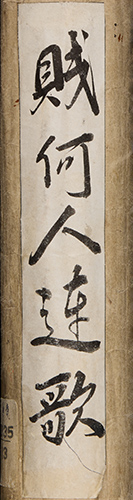 賦何人連歌
35
3